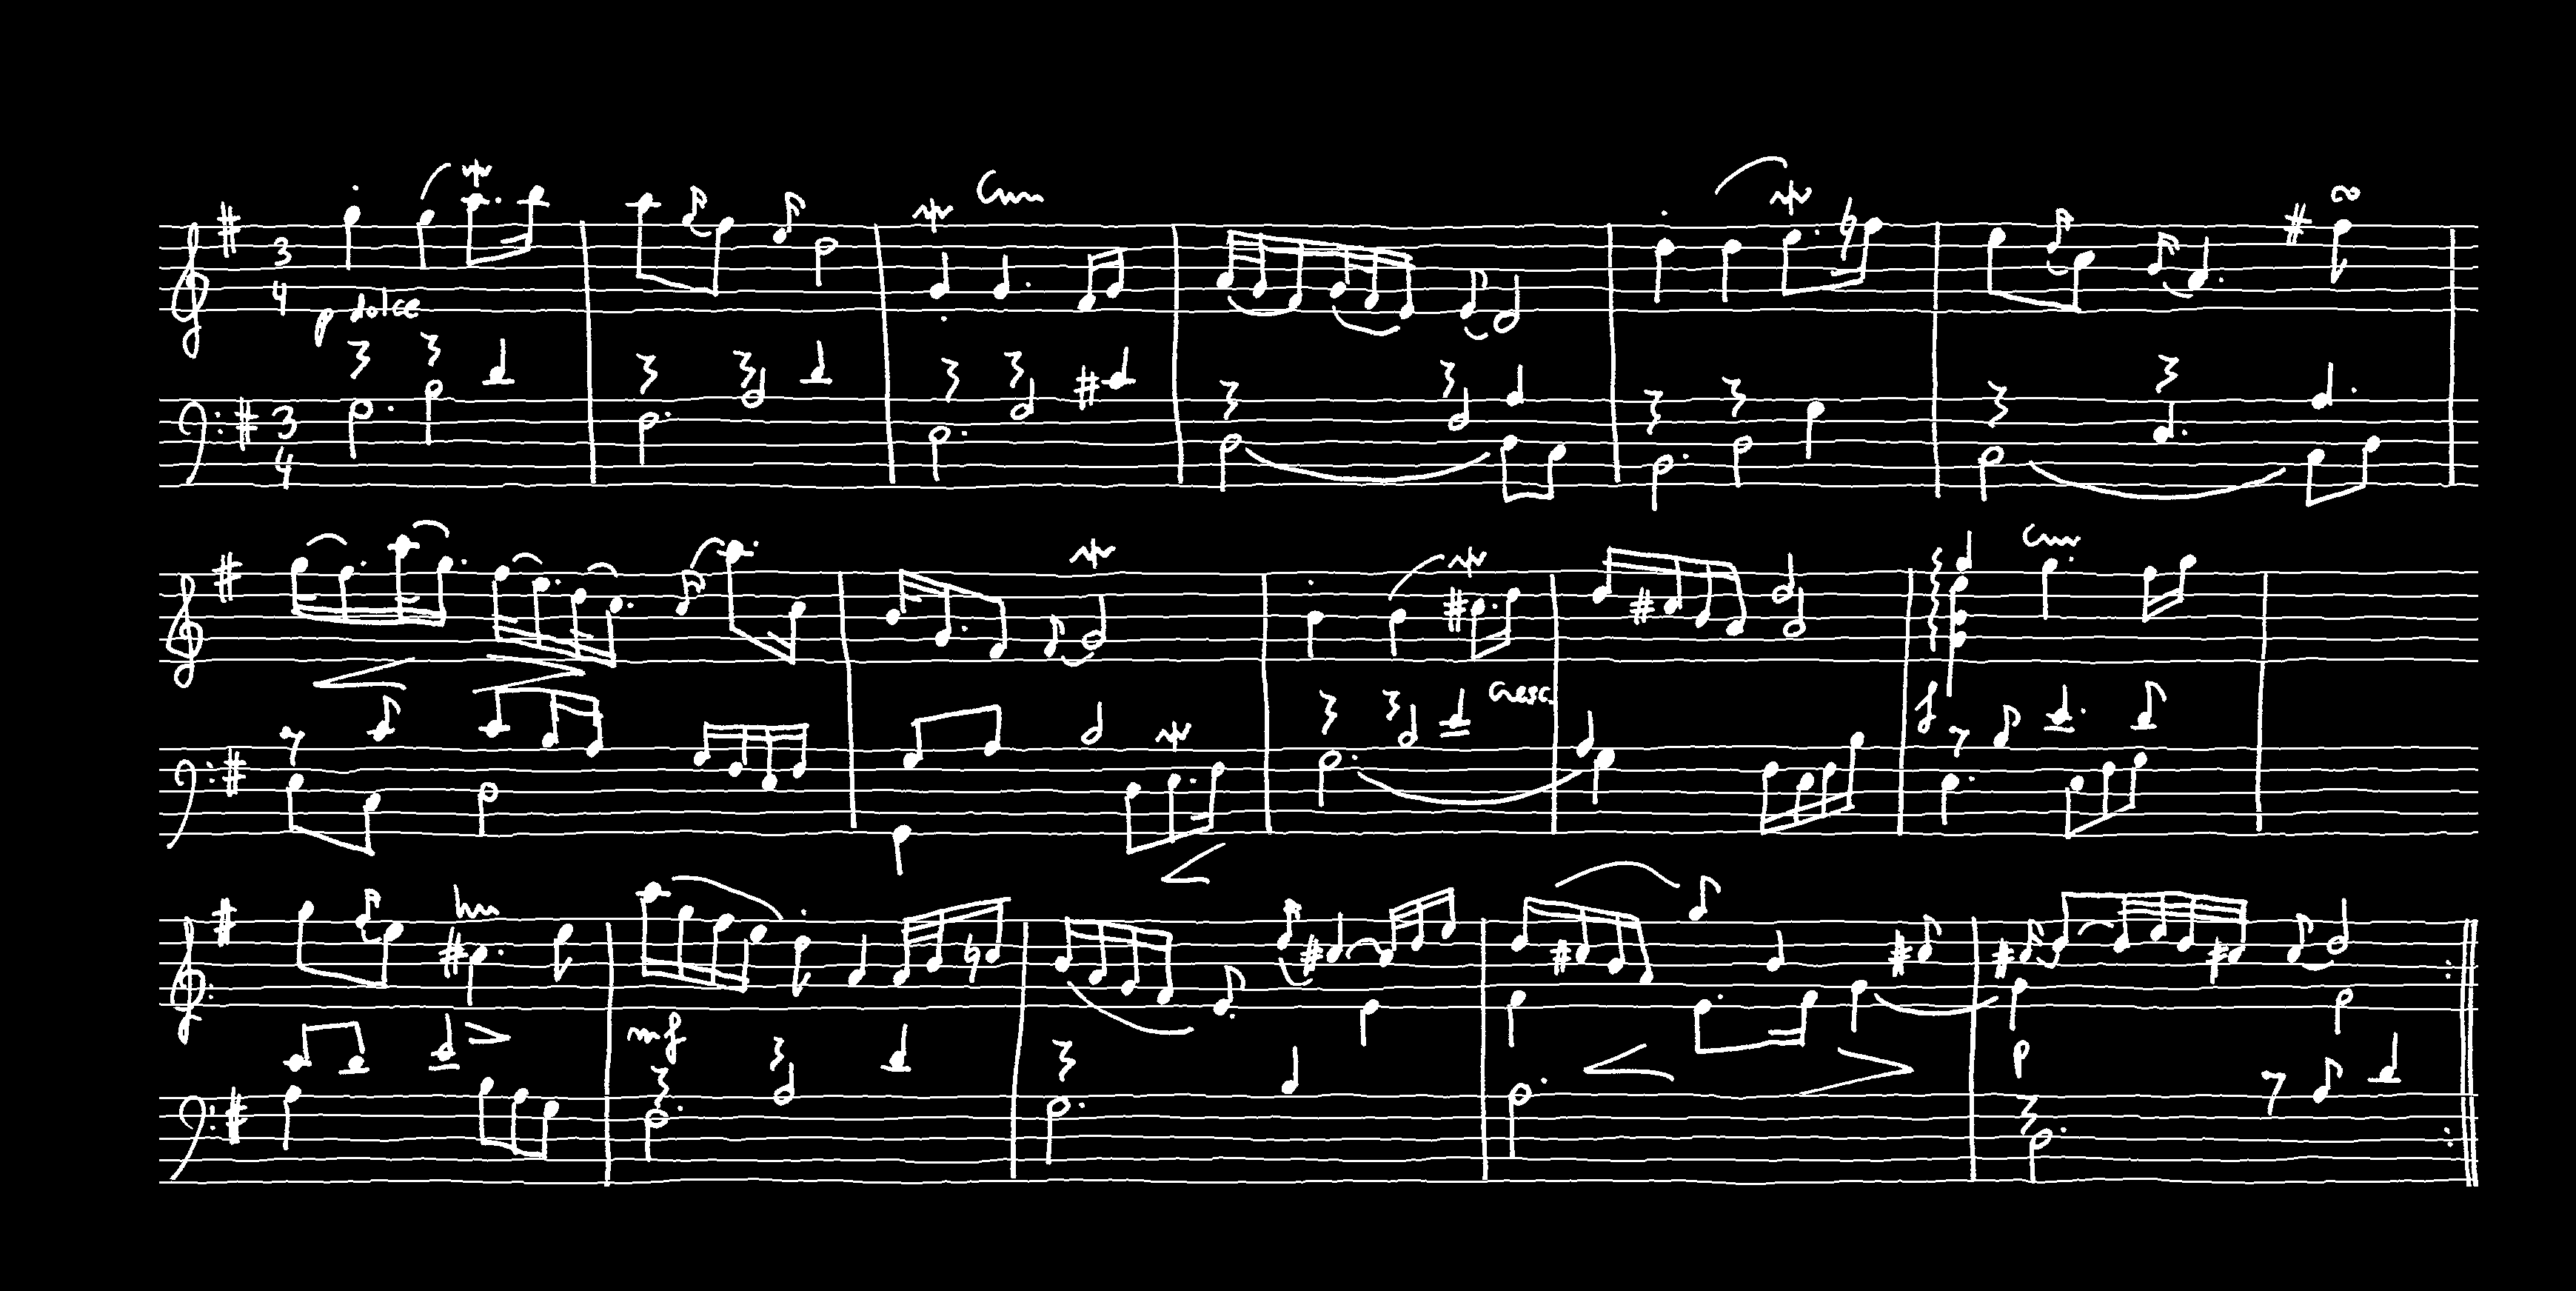 3
4
p dolce
3
4
cresc.
f
mf
p